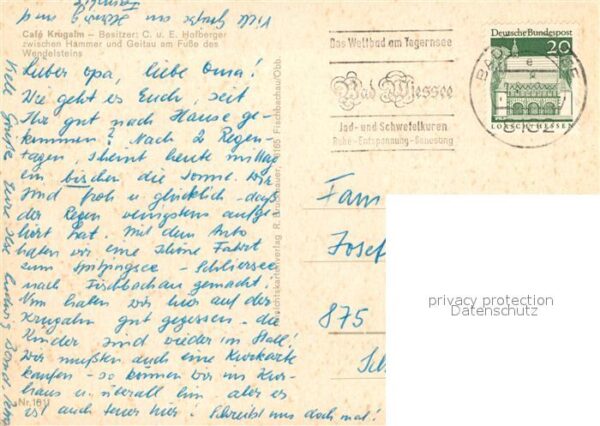 Café Krugalm – Besitzer: C. u. E. Hofberger
zwischen Hammer und Geitau am Fuße des
Wendelsteins
Lieber Opa, liebe Oma!
Wie geht es Euch, seit
Ihr gut nach Hause ge-
kommen? Nach 2 Regen-
tagen, scheint heute mittag
ein bischen die Sonne. Wir
sind froh u. glücklich - daß
der Regen wenigstens aufge-
hört hat. Mit dem Auto
haben wir eine schöne Fahrt
zum Spitzingsee - Schliersee
nach Fischbachau gemacht.
Nun haben wir hier auf der
Krugalm gut gegessen - die
Kinder sind wieder im Stall!
Wir mußten auch eine Kurkarte
kaufen - so können wir ins Kur-
haus u. überall hin, aber es
ist auch teuer hier! Schreibt uns doch mal!
Nr. 1611
Ansichtskartenverlag R. 8165 Fischbachau/Obb.
Das Weltbad am Tegernsee
Bad Wiessee
Jod- und Schwefelkuren
Ruhe-Entspannung-Genesung
BAD
Deutsche Bundespost
20
LORSCH/HESSEN
Fam
Josef
875
privacy protection
Datenschutz